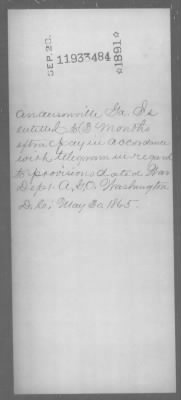 SEP. 23.
11933484
*1891*
Andersonville Ga. Is
entitled to 3 months
extra pay in accordance
with telegram in regard
to provisions dated War
Dept. A.G.O. Washington
D.C., May 30, 1865.